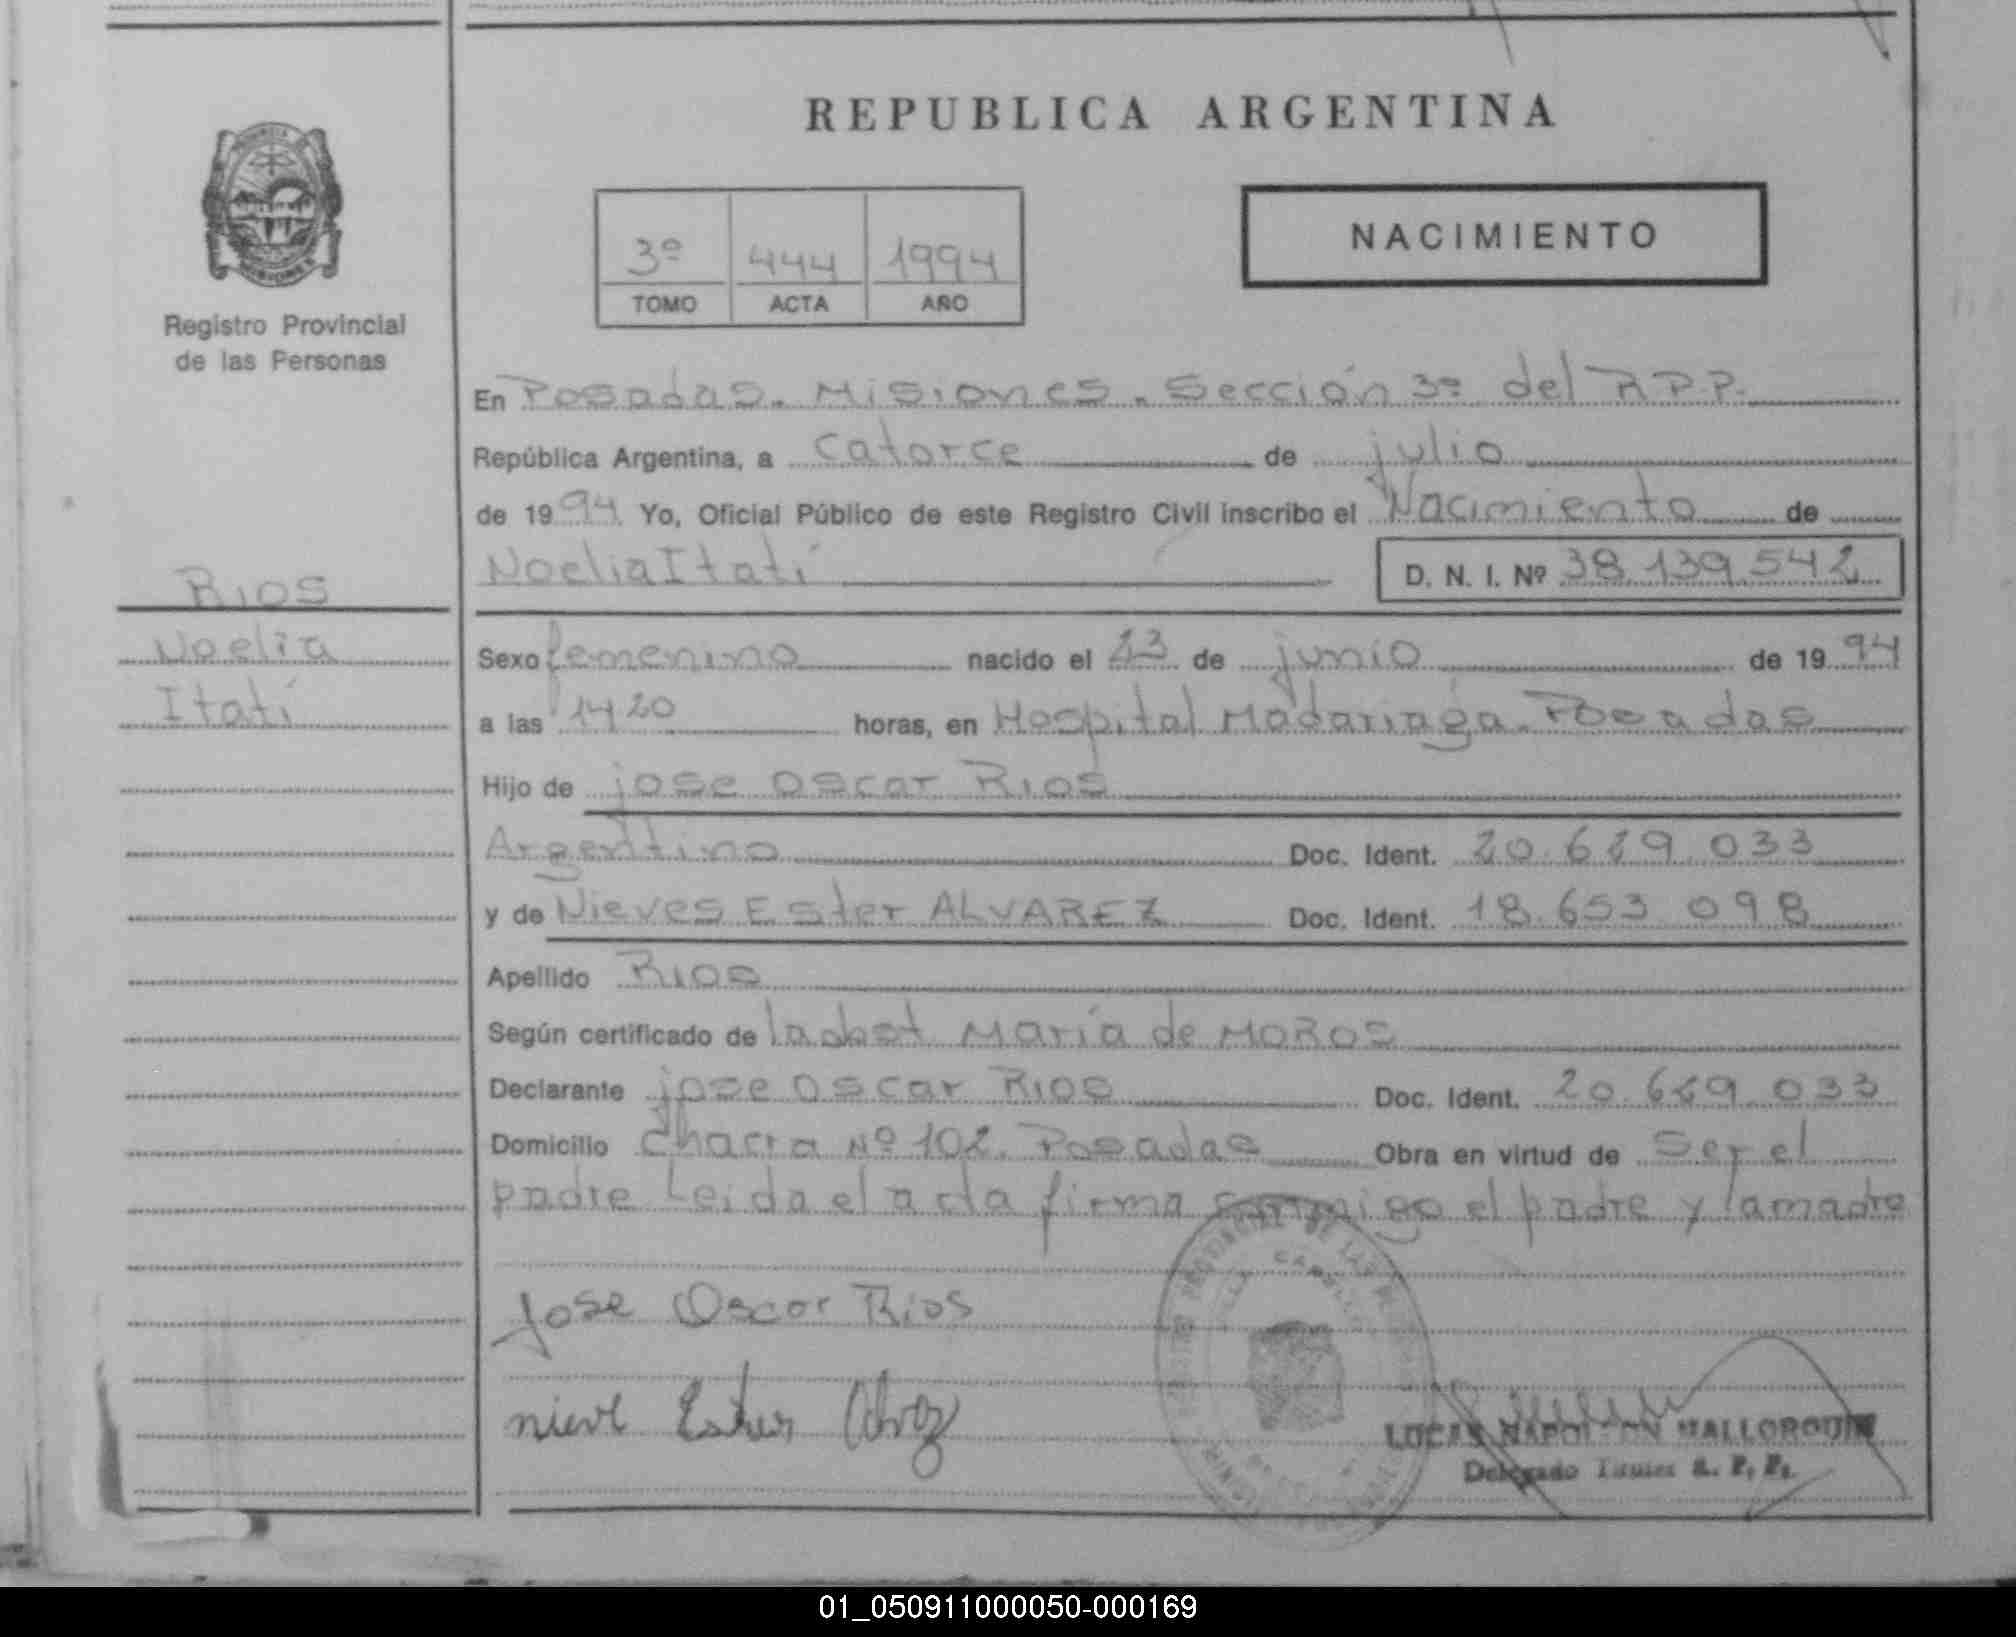 REPUBLICA ARGENTINA
3º 444 1994
TOMO ACTA AÑO
NACIMIENTO
Registro Provincial
de las Personas
RIOS
Noelia
Itatí
En Posadas. Misiones. Sección 3ª del R.P.P.
República Argentina, a catorce de julio
de 1994 Yo, Oficial Público de este Registro Civil inscribo el Nacimiento de
Noelia Itatí D. N. I. Nº 38.139.542
Sexo femenino nacido el 23 de junio de 1994
a las 14 20 horas, en Hospital Madariaga. Posadas
Hijo de jose oscar Rios
Argentino Doc. Ident. 20.629.033
y de Nieves Ester ALVAREZ Doc. Ident. 18.653 098
Apellido Rios
Según certificado de María de MOROS
Declarante jose oscar Rios Doc. Ident. 20.629.033
Domicilio chacra Nº 102. Posadas Obra en virtud de Ser el
padre Leida el acta firma conmigo el padre y la madre
Jose Oscar Rios
nieve Ester
LUCAS NAPOLEON MALLORQUIN
Delegado Titular R. P. P.
01_050911000050-000169